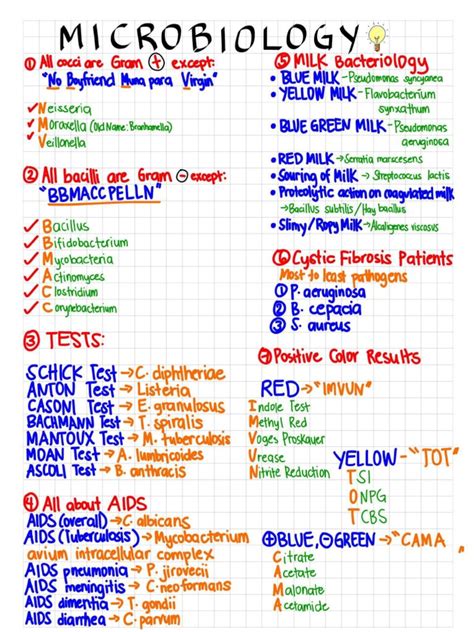 MICROBIOLOGY
① All cocci are Gram ⊕ except:
"No Boyfriend Muna para Virgin"
✓ Neisseria
✓ Moraxella (Old Name: Branhamella)
✓ Veillonella
② All bacilli are Gram ⊖ except:
"BBMACCPELLN"
✓ Bacillus
✓ Bifidobacterium
✓ Mycobacteria
✓ Actinomyces
✓ Clostridium
✓ Corynebacterium
③ TESTS:
SCHICK Test → C. diphtheriae
ANTON Test → Listeria
CASONI Test → E. granulosus
BACHMANN Test → T. spiralis
MANTOUX Test → M. tuberculosis
MOAN Test → A. lumbricoides
ASCOLI Test → B. anthracis
④ All about AIDS
AIDS (overall) → C. albicans
AIDS (Tuberculosis) → Mycobacterium
avium intracellular complex
AIDS pneumonia → P. jirovecii
AIDS meningitis → C. neoformans
AIDS dimentia → T. gondii
AIDS diarrhea → C. parvum
⑤ MILK Bacteriology
• BLUE MILK - Pseudomonas syncyanea
• YELLOW MILK - Flavobacterium
synxathum
• BLUE GREEN MILK - Pseudomonas
aeruginosa
• RED MILK → Serratia marcesens
• Souring of Milk → Streptococcus lactis
• Proteolytic action on coagulated milk
→ Bacillus subtilis / Hay bacillus
• Slimy/Ropy Milk → Alcaligenes viscosus
⑥ Cystic Fibrosis Patients
Most to least pathogens
① P. aeruginosa
② B. cepacia
③ S. aureus
⑦ Positive Color Results
RED → "IMVUN"
Indole Test
Methyl Red
Voges Proskauer
Urease
Nitrite Reduction
YELLOW - "TOT"
TSI
ONPG
TCBS
⊕BLUE, ⊖GREEN → "CAMA"
Citrate
Acetate
Malonate
Acetamide